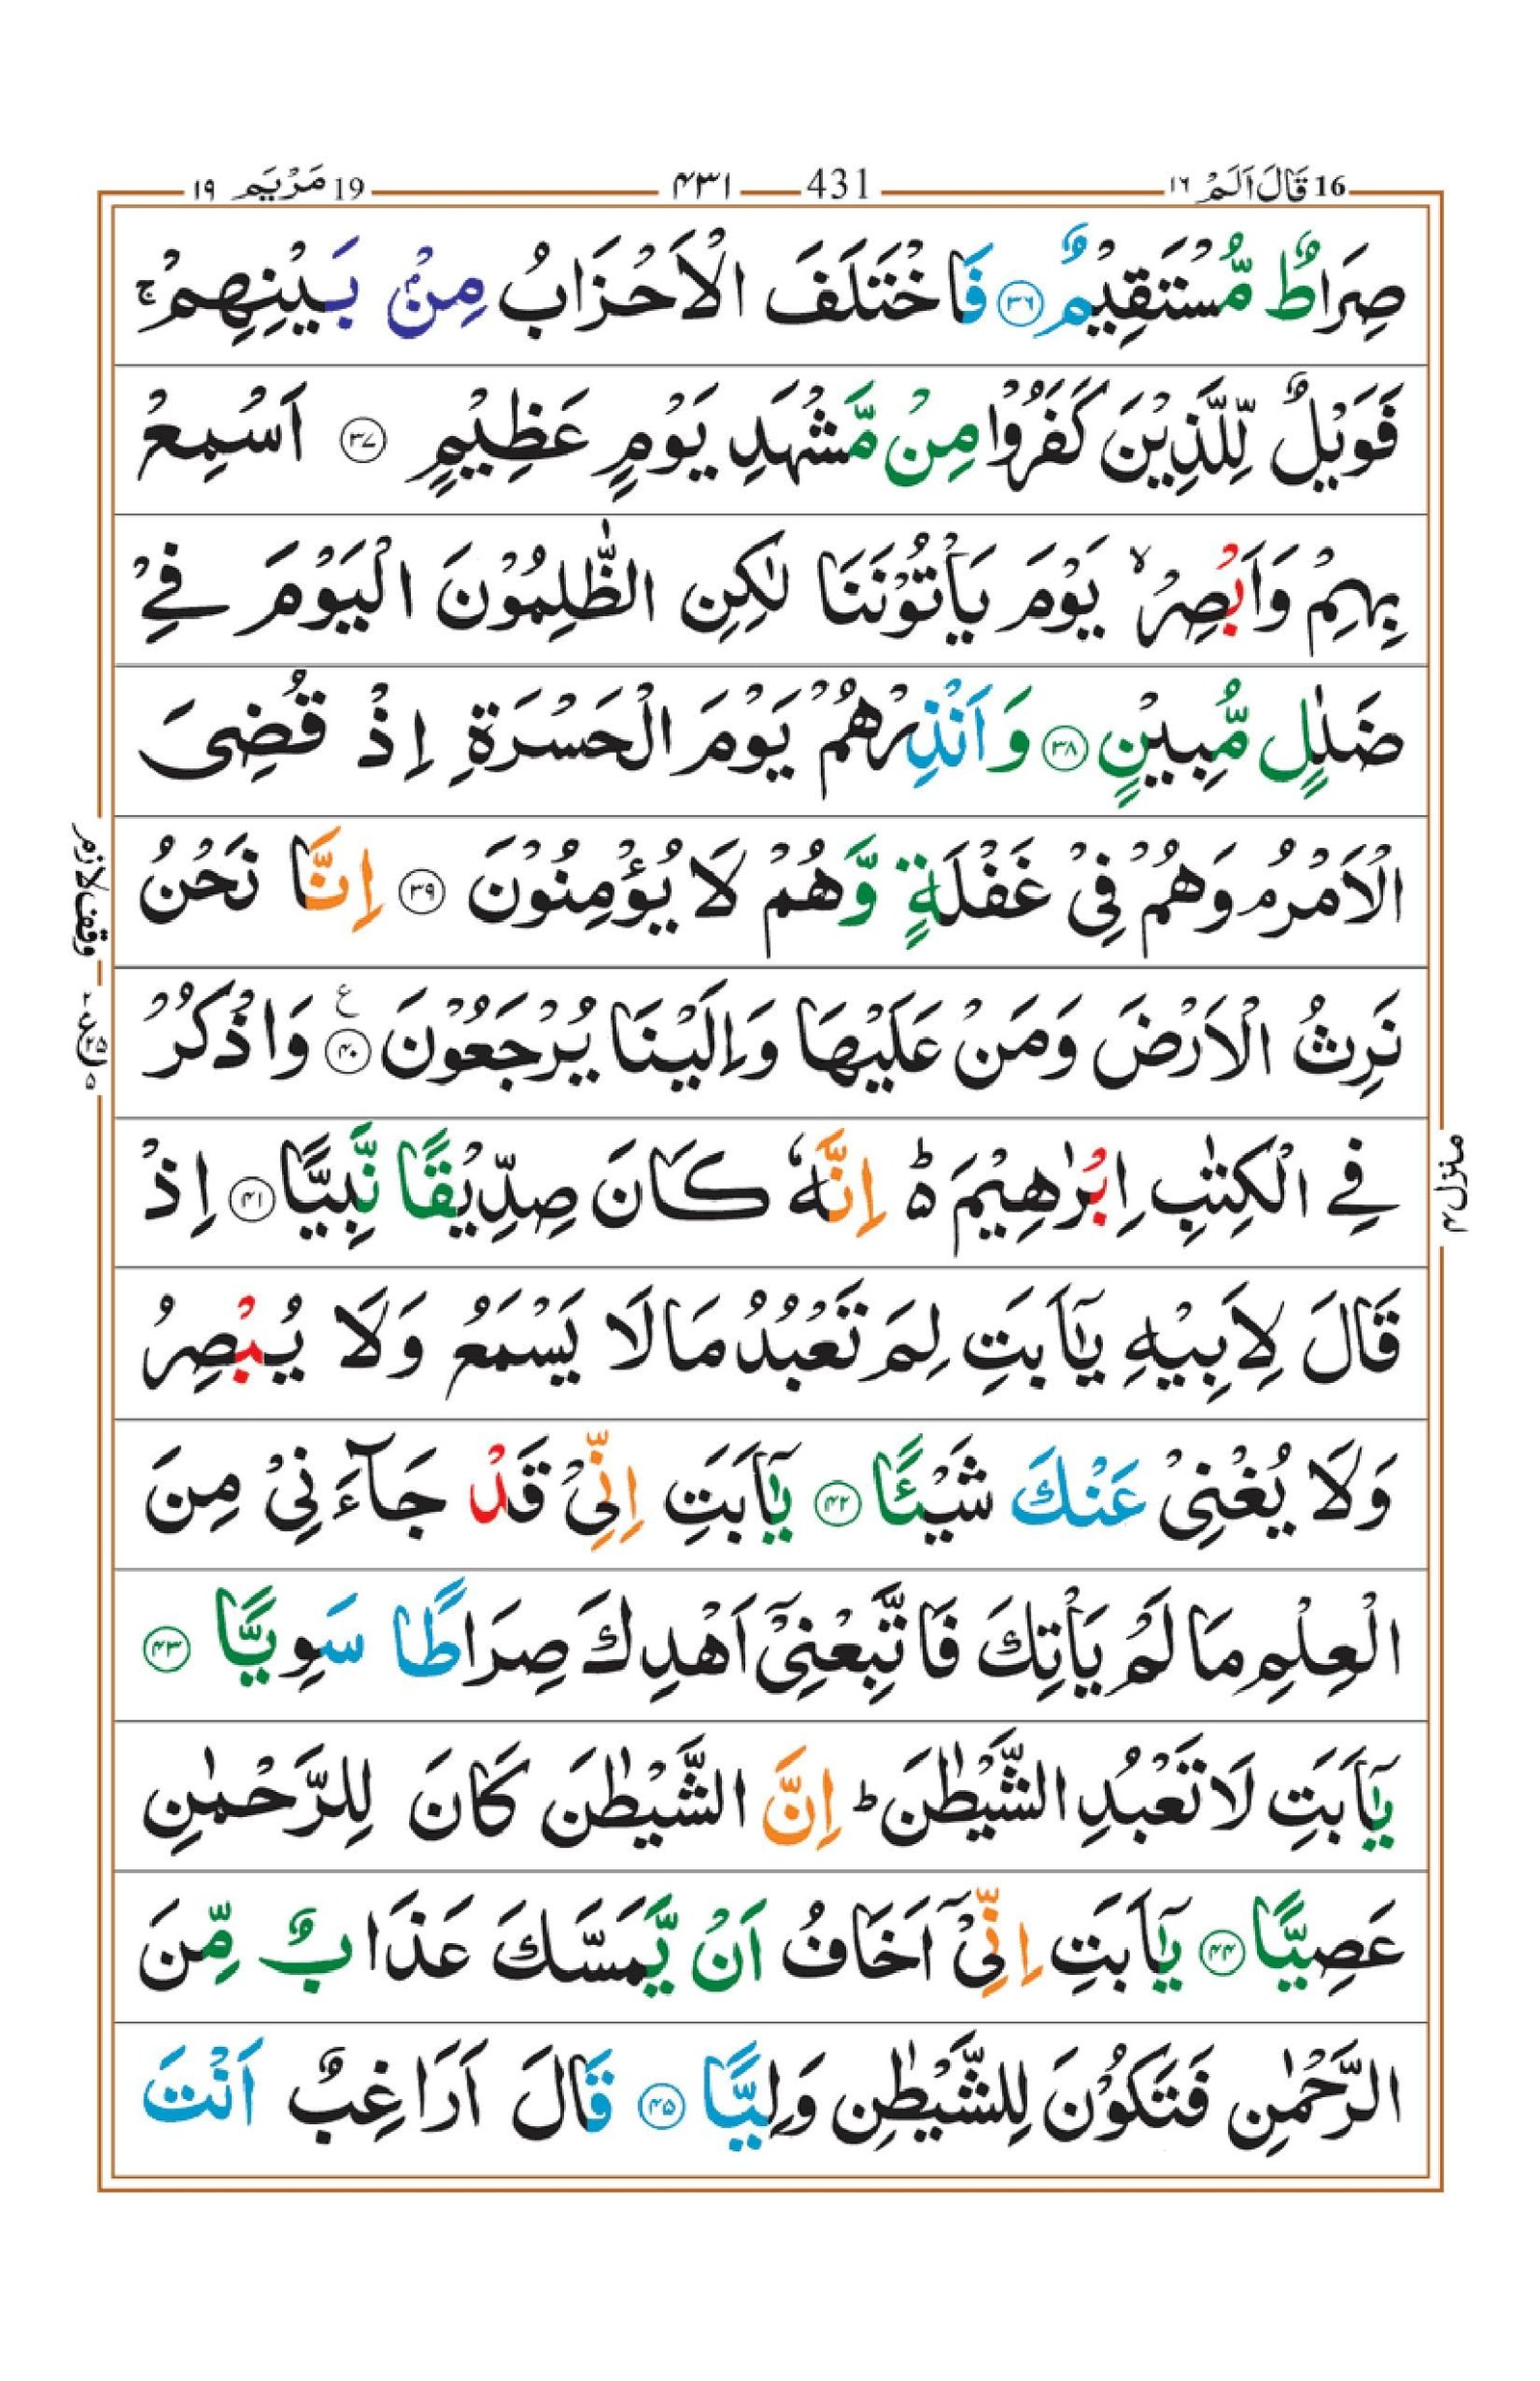 16 قَالَ اَلَمْ ١٦ 431 ۴۳۱ 19 مَرْيَم ١٩
صِرَاطٌ مُّسْتَقِيْمٌ ﴿۳۶﴾ فَاخْتَلَفَ الْاَحْزَابُ مِنْۢ بَيْنِهِمْ ۚ
فَوَيْلٌ لِّلَّذِيْنَ كَفَرُوْا مِنْ مَّشْهَدِ يَوْمٍ عَظِيْمٍ ﴿۳۷﴾ اَسْمِعْ
بِهِمْ وَاَبْصِرْ ۙ يَوْمَ يَاْتُوْنَنَا لٰكِنِ الظّٰلِمُوْنَ الْيَوْمَ فِيْ
ضَلٰلٍ مُّبِيْنٍ ﴿۳۸﴾ وَاَنْذِرْهُمْ يَوْمَ الْحَسْرَةِ اِذْ قُضِىَ
الْاَمْرُ ۘ وَهُمْ فِيْ غَفْلَةٍ وَّهُمْ لَا يُؤْمِنُوْنَ ﴿۳۹﴾ اِنَّا نَحْنُ
وقف لازم
نَرِثُ الْاَرْضَ وَمَنْ عَلَيْهَا وَاِلَيْنَا يُرْجَعُوْنَ ﴿۴۰﴾ ع وَاذْكُرْ
ع ۲ ۲۵ ۵
فِي الْكِتٰبِ اِبْرٰهِيْمَ ۵ؕ اِنَّهٗ كَانَ صِدِّيْقًا نَّبِيًّا ﴿۴۱﴾ اِذْ
منزل ۴
قَالَ لِاَبِيْهِ يٰۤاَبَتِ لِمَ تَعْبُدُ مَا لَا يَسْمَعُ وَلَا يُبْصِرُ
وَلَا يُغْنِيْ عَنْكَ شَيْـًٔا ﴿۴۲﴾ يٰۤاَبَتِ اِنِّيْ قَدْ جَآءَنِيْ مِنَ
الْعِلْمِ مَا لَمْ يَاْتِكَ فَاتَّبِعْنِيْۤ اَهْدِكَ صِرَاطًا سَوِيًّا ﴿۴۳﴾
يٰۤاَبَتِ لَا تَعْبُدِ الشَّيْطٰنَ ؕ اِنَّ الشَّيْطٰنَ كَانَ لِلرَّحْمٰنِ
عَصِيًّا ﴿۴۴﴾ يٰۤاَبَتِ اِنِّيْۤ اَخَافُ اَنْ يَّمَسَّكَ عَذَابٌ مِّنَ
الرَّحْمٰنِ فَتَكُوْنَ لِلشَّيْطٰنِ وَلِيًّا ﴿۴۵﴾ قَالَ اَرَاغِبٌ اَنْتَ